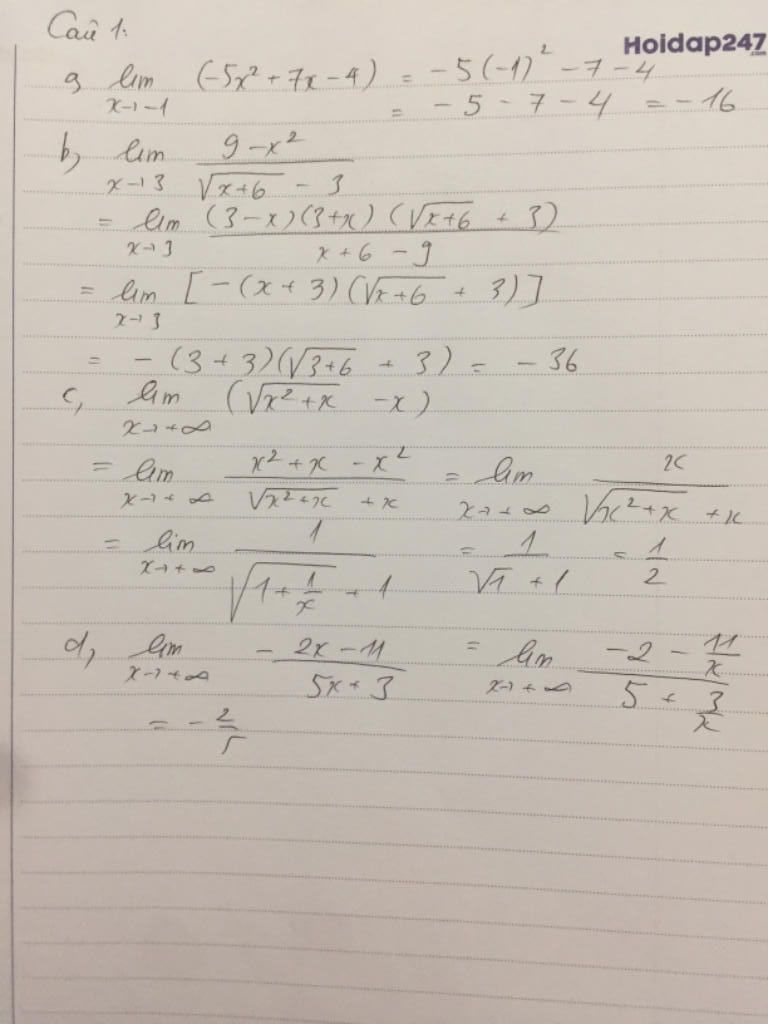 Câu 1:
Hoidap247.com
a, lim x→-1 (-5x² + 7x - 4) = -5(-1)² - 7 - 4
= -5 - 7 - 4 = -16
b, lim x→3 (9 - x²)/(√(x+6) - 3)
= lim x→3 ((3-x)(3+x)(√(x+6) + 3))/(x + 6 - 9)
= lim x→3 [-(x+3)(√(x+6) + 3)]
= -(3+3)(√(3+6) + 3) = -36
c, lim x→+∞ (√(x²+x) - x)
= lim x→+∞ (x² + x - x²)/(√(x²+x) + x) = lim x→+∞ x/(√(x²+x) + x)
= lim x→+∞ 1/(√(1 + 1/x) + 1) = 1/(√1 + 1) = 1/2
d, lim x→+∞ (-2x - 11)/(5x + 3) = lim x→+∞ (-2 - 11/x)/(5 + 3/x)
= -2/5